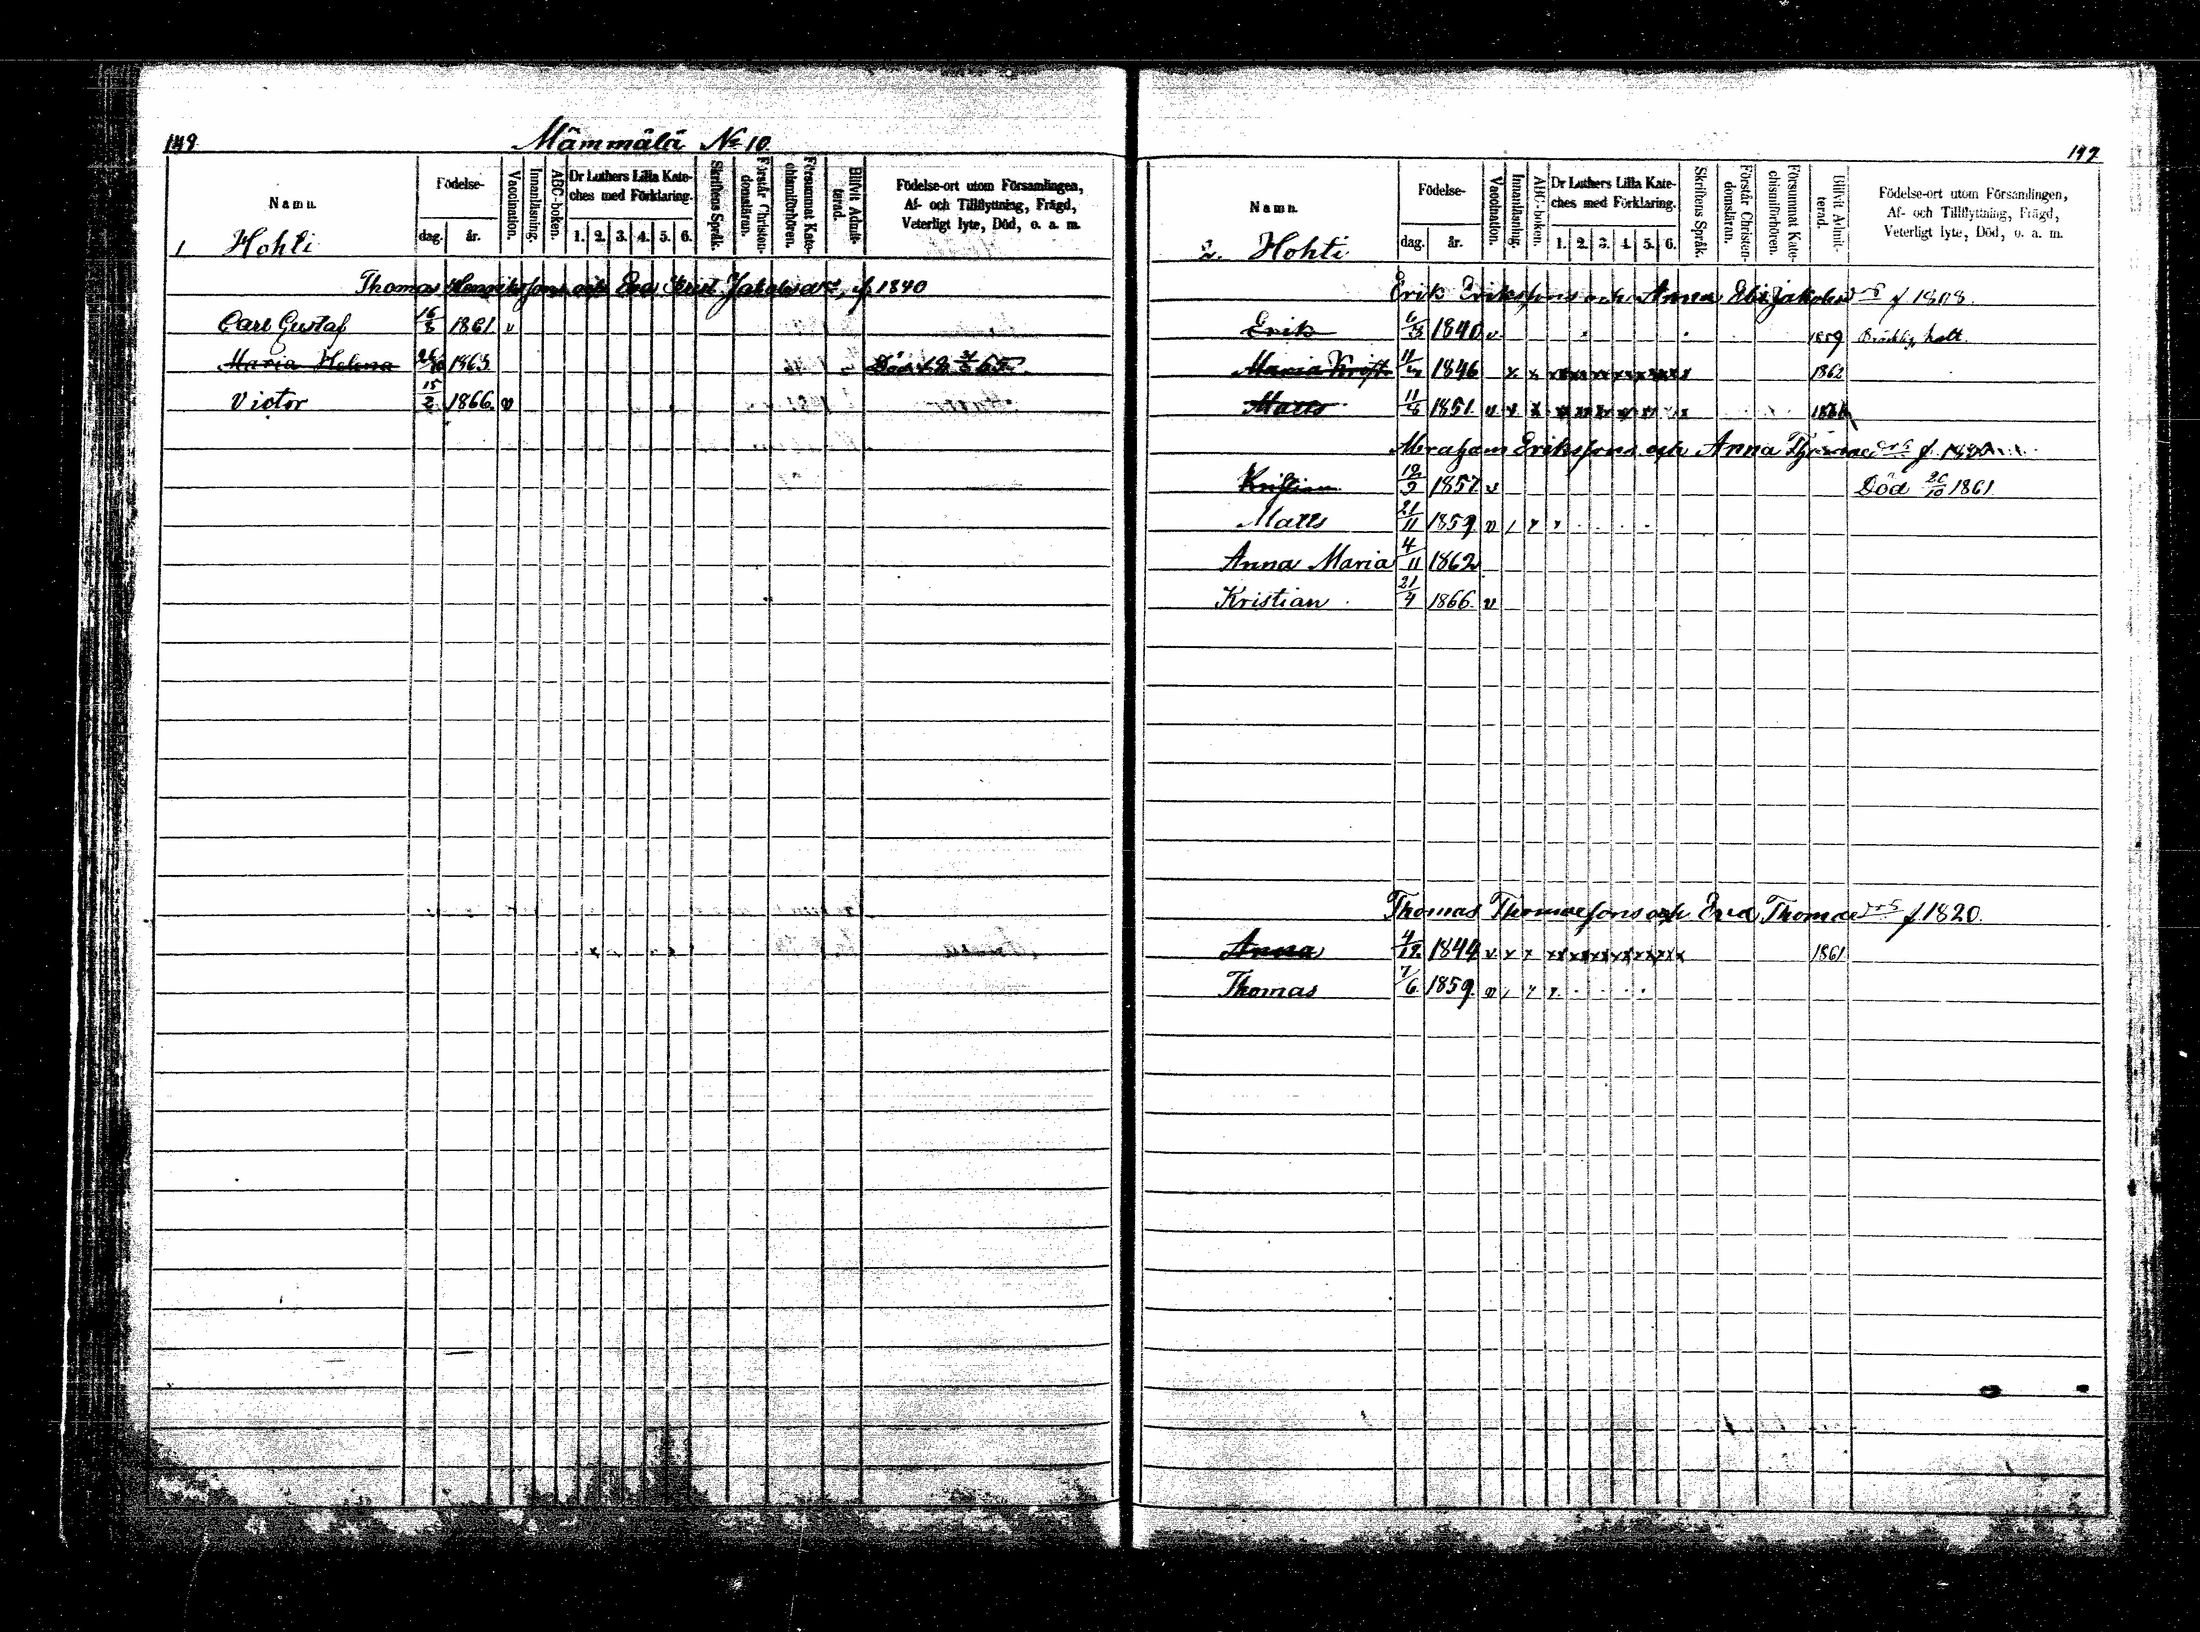 149.
Mämmälä No 10
Namn.
Födelse-
dag.
år.
Vaccination.
Innanläsning.
ABC-boken.
Dr Luthers Lilla Kate-
ches med Förklaring.
1. 2. 3. 4. 5. 6.
Skriftens Språk.
Förstår Christen-
domsläran.
Försummat Kate-
chismiförhören.
Blifvit Admit-
terad.
Födelse-ort utom Församlingen,
Af- och Tillflyttning, Frägd,
Veterligt lyte, Död, o. a. m.
1 Hohti
Thomas Henrikssons och Eva Krist. Jakobsdr, f. 1840
Carl Gustaf 16/8 1861. v
Maria Helena 1863. Död
Victor 15/2 1866. v
Namn.
Födelse-
dag.
år.
Vaccination.
Innanläsning.
ABC-boken.
Dr Luthers Lilla Kate-
ches med Förklaring.
1. 2. 3. 4. 5. 6.
Skriftens Språk.
Förstår Christen-
domsläran.
Försummat Kate-
chismiförhören.
Blifvit Admit-
terad.
Födelse-ort utom Församlingen,
Af- och Tillflyttning, Frägd,
Veterligt lyte, Död, o. a. m.
2. Hohti
Erik Erikssons och Anna Jakobsdrs f 1808.
Erik 1840 v 1859 halt.
Maria 1846 x x xx xx xx xx xx xx x 1862
Matts 1851. v x x xx xx xx xx xx x
Abraham Erikssons och Anna
Kristian 1857. v Död 26/10 1861
Matts 21/11 1859. v
Anna Maria 4/11 1862
Kristian 21/4 1866. v
Thomas Thomassons och Eva Thomasdrs f 1820.
Anna 4/12 1844 v x x xx xx xx xx xx xx x 1861
Thomas 7/6 1859. v